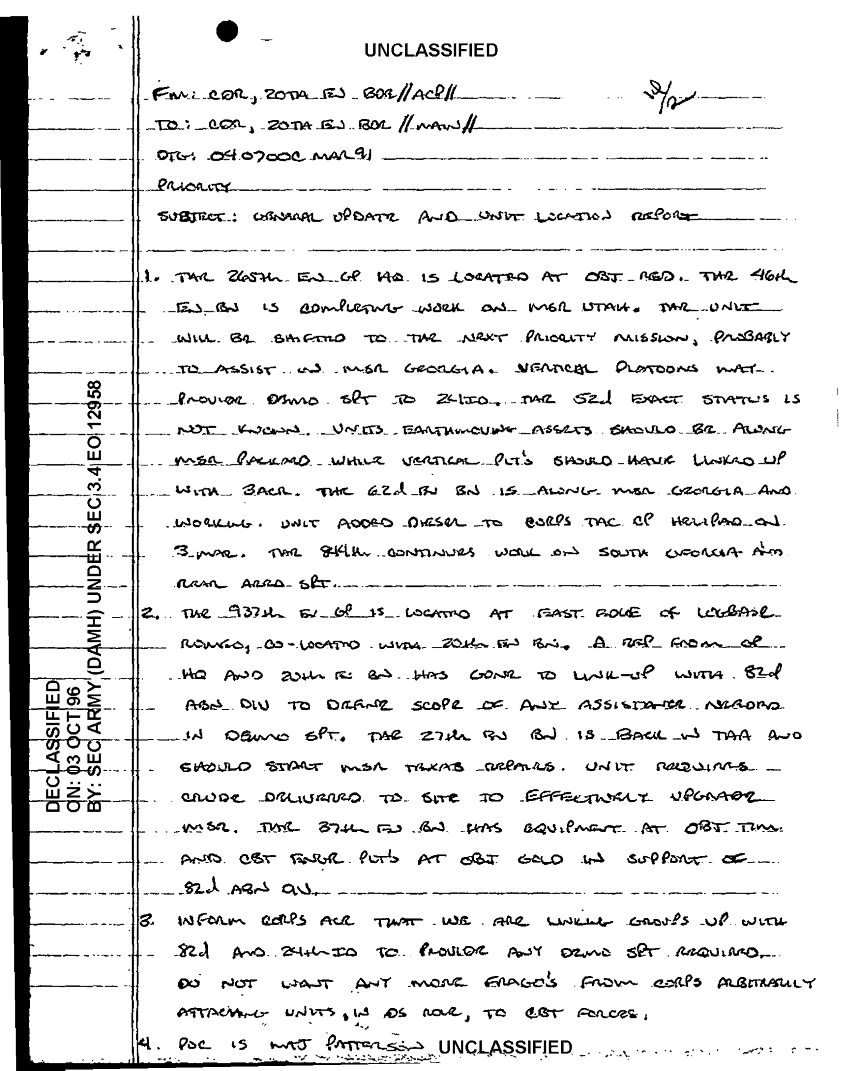 UNCLASSIFIED
FM: CDR, 20TH EN BDE//ACP//
TO: CDR, 20TH EN BDE //MAIN//
DTG: 040700C MAR 91
PRIORITY
SUBJECT: GENERAL UPDATE AND UNIT LOCATION REPORT
1. THE 265TH EN GP HQ IS LOCATED AT OBJ RED. THE 46th
EN BN IS COMPLETING WORK ON MSR UTAH. THE UNIT
WILL BE SHIFTED TO THE NEXT PRIORITY MISSION, PROBABLY
TO ASSIST ON MSR GEORGIA. VERTICAL PLATOONS MAY
PROVIDE DEMO SPT TO 24ID. THE 52d EXACT STATUS IS
NOT KNOWN. UNITS EARTHMOVING ASSETS SHOULD BE ALONG
MSR PACKARD WHILE VERTICAL PLT'S SHOULD HAVE LINKED UP
WITH 3ACR. THE 62d EN BN IS ALONG MSR GEORGIA AND
WORKING. UNIT ADDED DIESEL TO CORPS TAC CP HELIPAD ON
3 MAR. THE 841th CONTINUES WORK ON SOUTH GEORGIA AND
REAR AREA SPT.
2. THE 937th EN GP IS LOCATED AT EAST EDGE OF LOGBASE
ROMEO, CO-LOCATED WITH 20th EN BN. A REP FROM GP
HQ AND 20th EN BN HAS GONE TO LINK-UP WITH 82d
ABN DIV TO DEFINE SCOPE OF ANY ASSISTANCE NEEDED
IN DEMO SPT. THE 27th EN BN IS BACK IN TAA AND
SHOULD START MSR TEXAS REPAIRS. UNIT REQUIRES
CRUDE DELIVERED TO SITE TO EFFECTIVELY UPGRADE
MSR. THE 37th EN BN HAS EQUIPMENT AT OBJ TIM
AND CBT ENGR PLT'S AT OBJ GOLD IN SUPPORT OF
82d ABN DIV.
3. INFORM CORPS ACE THAT WE ARE LINKING GROUPS UP WITH
82d AND 24th ID TO PROVIDE ANY DEMO SPT REQUIRED.
DO NOT WANT ANY MORE FRAGO'S FROM CORPS ARBITRARILY
ATTACHING UNITS, IN DS ROLE, TO CBT FORCES.
4. POC IS MAJ PATTERSON
UNCLASSIFIED
DECLASSIFIED
ON: 03 OCT 96
BY: SEC ARMY (DAMH) UNDER SEC 3.4 EO 12958